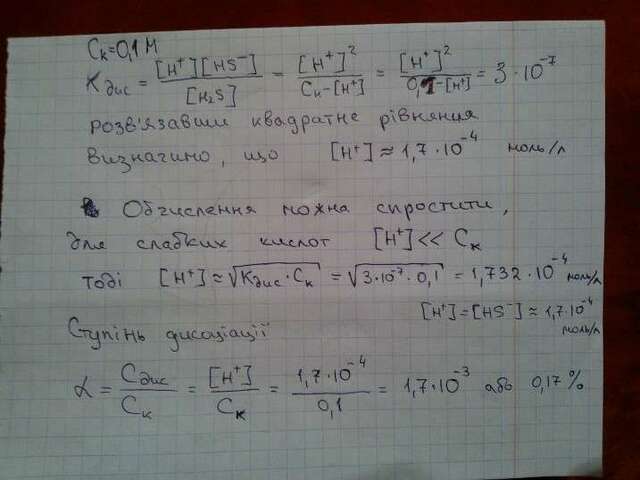 Cк=0,1 М
Kдис = [H⁺][HS⁻]/[H₂S] = [H⁺]²/(Cк-[H⁺]) = [H⁺]²/(0,1-[H⁺]) = 3·10⁻⁷
розв'язавши квадратне рівняння
визначимо, що [H⁺] ≈ 1,7·10⁻⁴ моль/л
Обчислення можна спростити,
для слабких кислот [H⁺] << Cк
тоді [H⁺] ≈ √(Kдис·Cк) = √(3·10⁻⁷·0,1) = 1,732·10⁻⁴ моль/л
[H⁺]=[HS⁻] ≈ 1,7·10⁻⁴ моль/л
Ступінь дисоціації
α = Cдис/Cк = [H⁺]/Cк = 1,7·10⁻⁴/0,1 = 1,7·10⁻³ або 0,17%